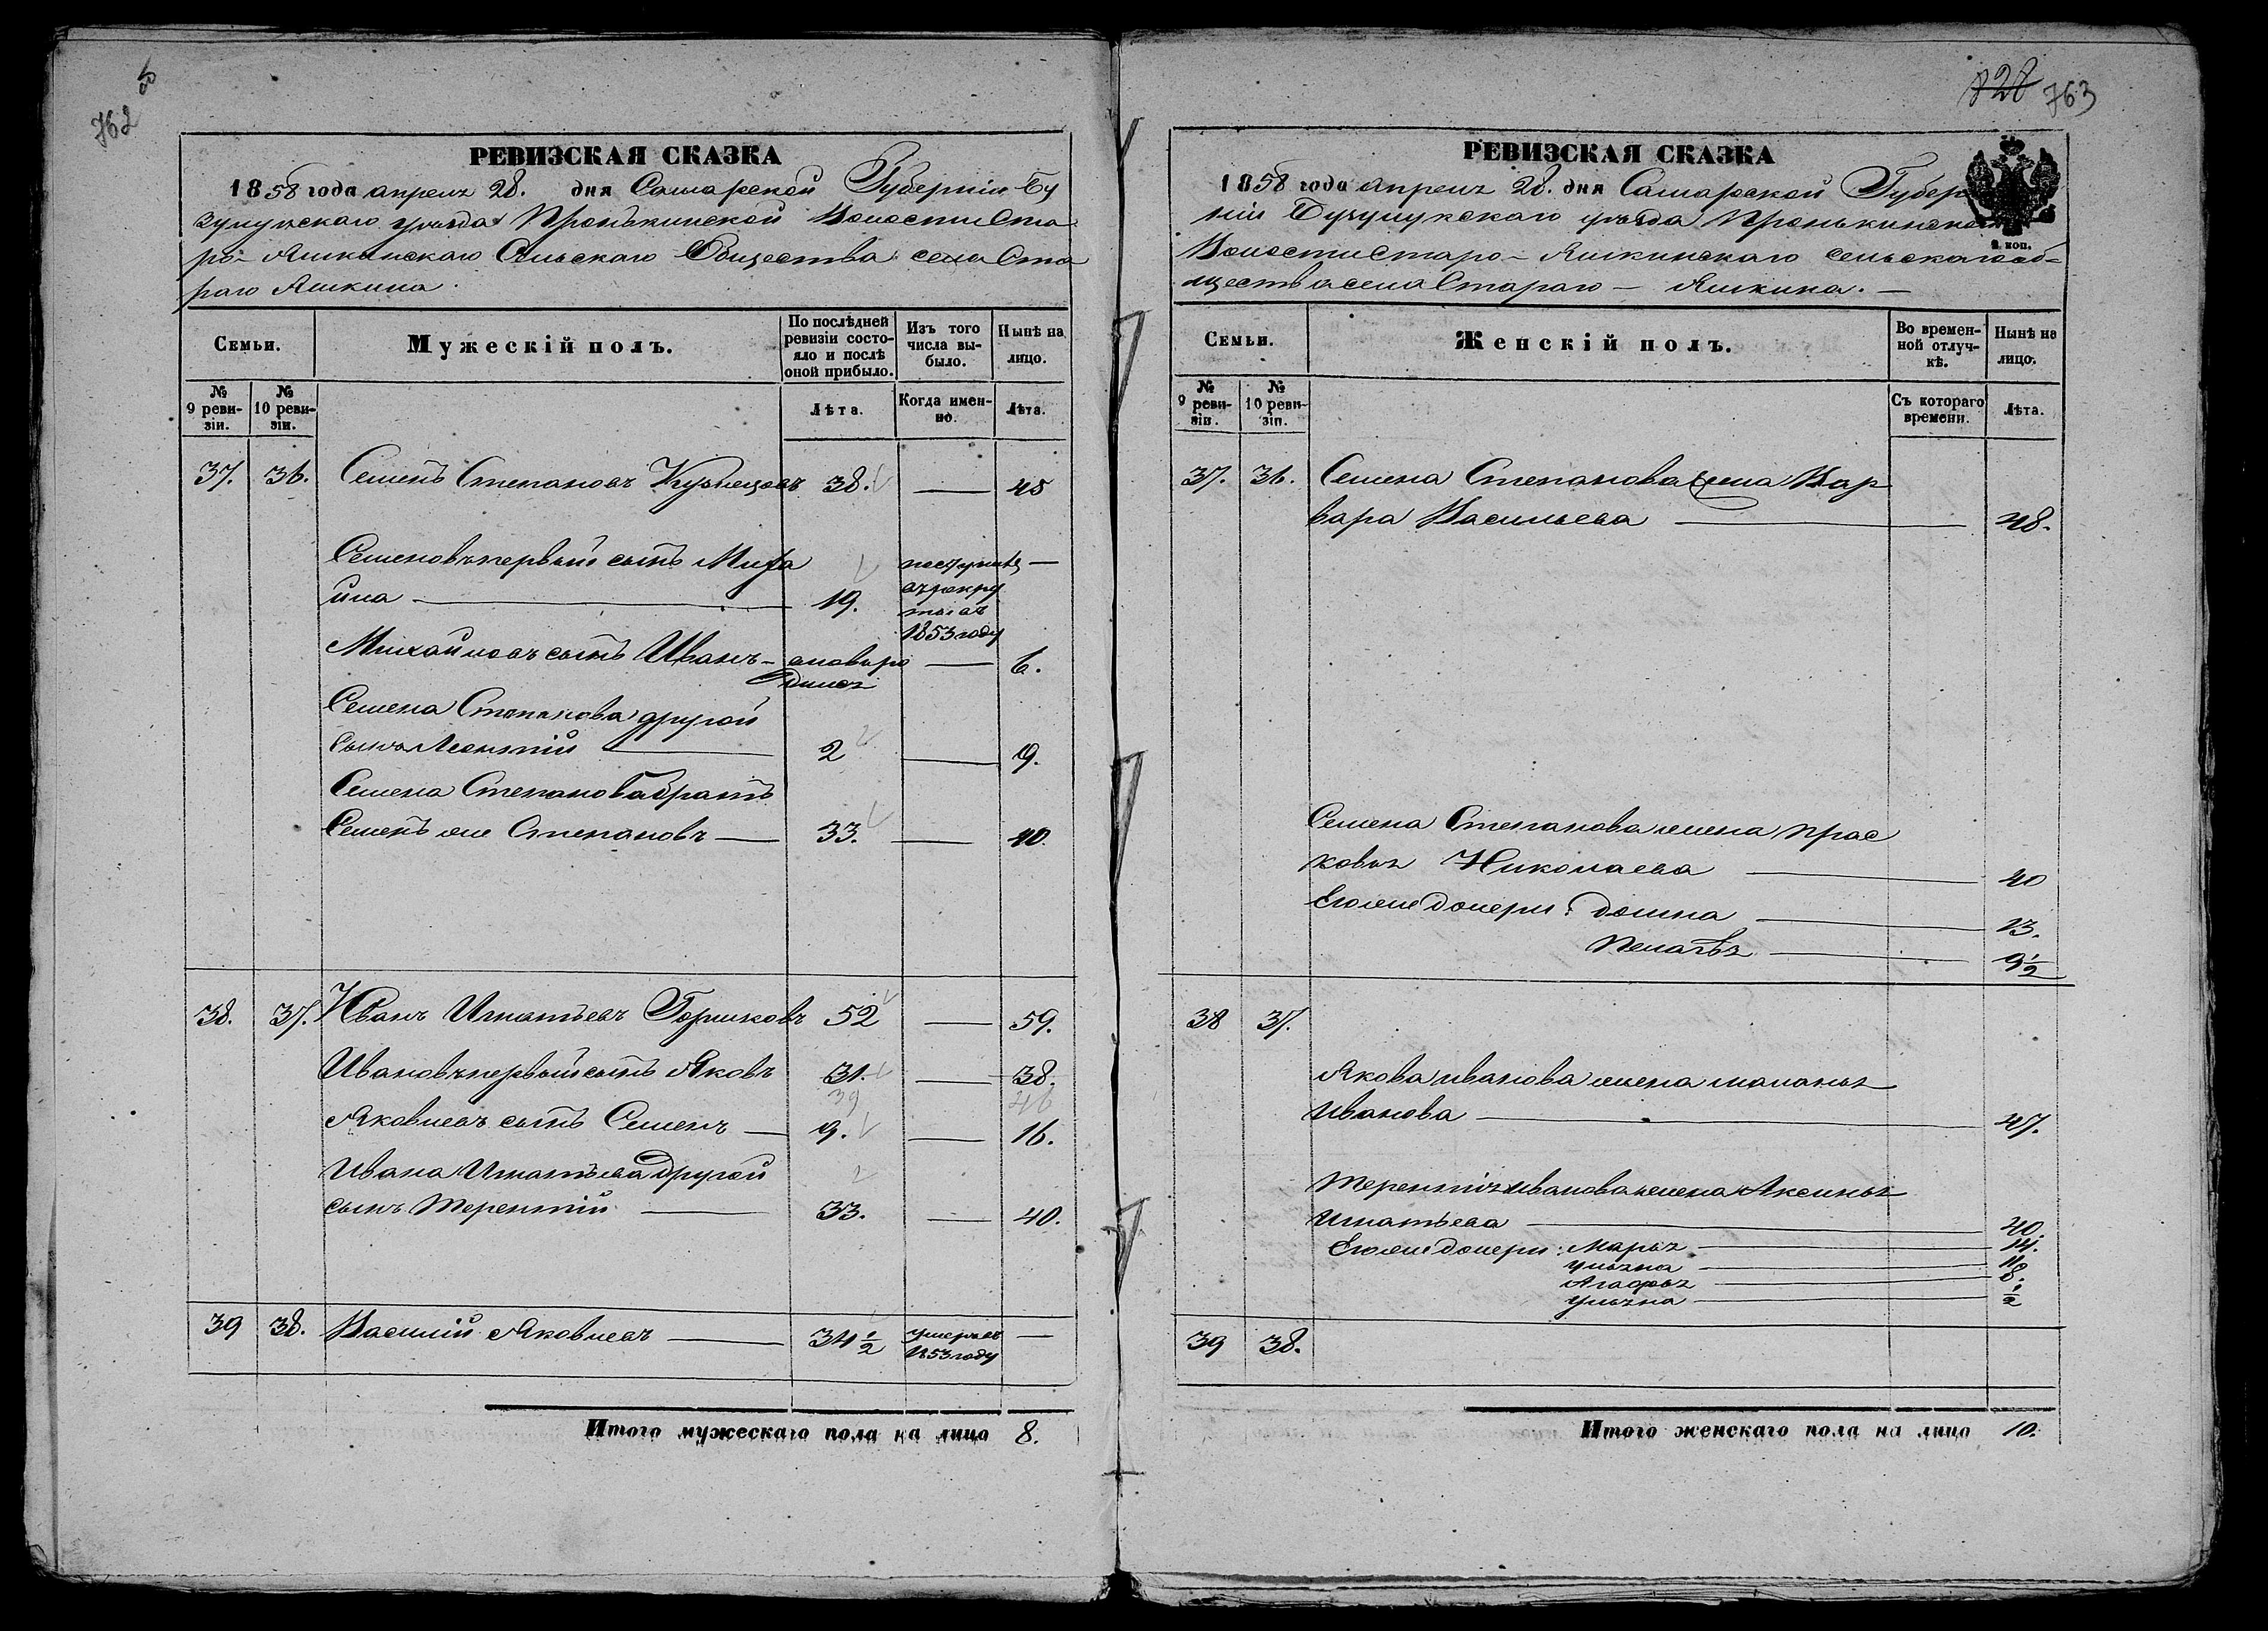 762
РЕВИЗСКАЯ СКАЗКА
1858 года апреля 28. дня Самарской Губернии Бу
зулукскаго уѣзда Пронькинской Волости Ста
ро-Яшкинскаго Сельскаго Общества села Ста
раго Яшкина.
Семьи.
Мужескій полъ.
По послѣдней ревизіи состояло и послѣ оной прибыло.
Изъ того числа выбыло.
Нынѣ на лицо.
№ 9 ревизіи.
№ 10 ревизіи.
Лѣта.
Когда именно.
Лѣта.
37. 36. Семенъ Степановъ Кузнецовъ 38. — 45
Семеновъ первый сынъ Миха
йла — 19. поступилъ въ рекруты въ 1853 году —
Михайловъ сынъ Иванъ — вновь родился — 6.
Семена Степанова другой
сынъ Леонтій — 2 — 9.
Семена Степанова братъ
Семенъ же Степановъ — 33. — 40.
38. 37. Иванъ Игнатьевъ Горшковъ 52 — 59.
Ивановъ первый сынъ Яковъ 31. — 38.
39 46
Яковлевъ сынъ Семенъ — 9. — 16.
Ивана Игнатьева другой
сынъ Терентій — 33. — 40.
39 38. Василій Яковлевъ — 34½ умеръ въ 1853 году —
Итого мужескаго пола на лицо 8.
828 763
РЕВИЗСКАЯ СКАЗКА
1858 года апреля 28. дня Самарской Губер
ніи Бузулукскаго уѣзда Пронькинской
Волости Старо-Яшкинскаго сельскаго об-
щества села Стараго-Яшкина. —
Семьи.
Женскій полъ.
Во временной отлучкѣ.
Нынѣ на лицо.
№ 9 ревизіи.
№ 10 ревизіи.
Съ котораго времени.
Лѣта.
37. 36. Семена Степанова жена Вар
вара Васильева — 48.
Семена Степанова жена Прас
ковья Николаева — 40
Его же дочери: Домна — 13.
Пелагѣя — 9½
38 37.
Якова Иванова жена Маланья
Иванова — 47.
Терентія Иванова жена Аксинья
Игнатьева — 40.
Его же дочери: Марья — 14.
Ульяна — 11
Агафья — 8.
Ульяна — ½
39 38.
Итого женскаго пола на лицо 10.